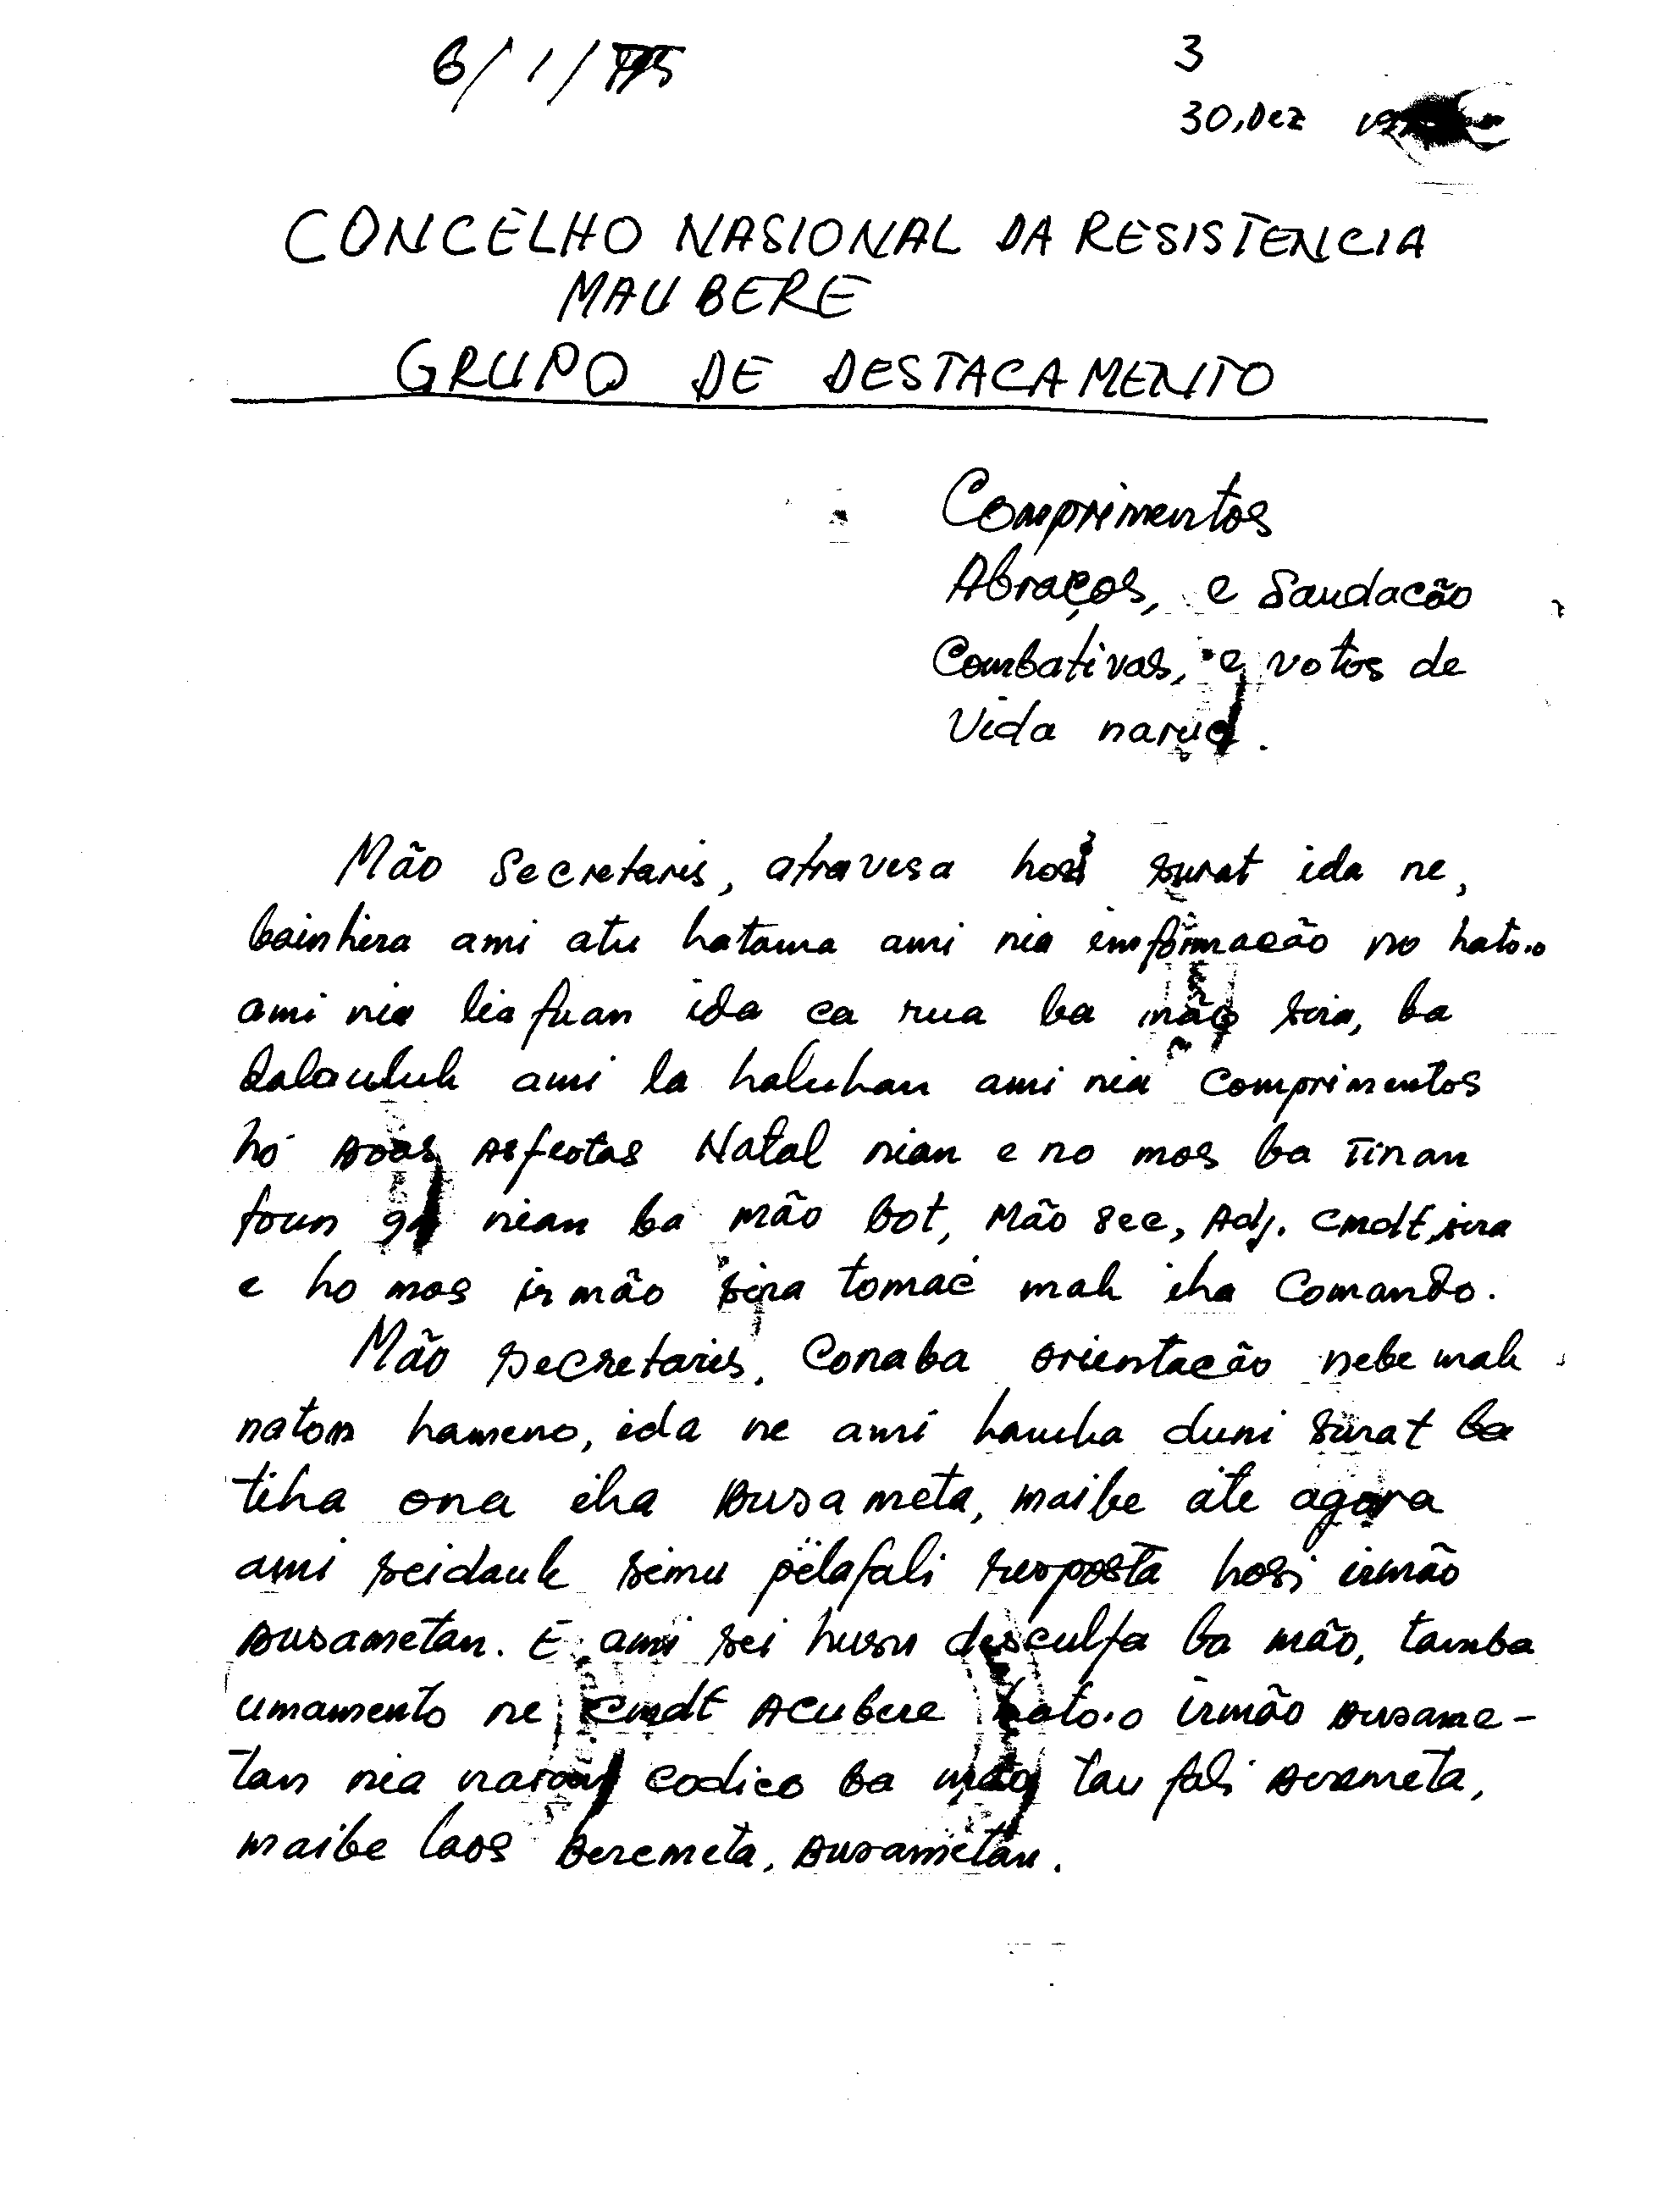 6/1/
3
30, Dez
CONCELHO NASIONAL DA RESISTENCIA
MAUBERE
GRUPO DE DESTACAMENTO
Comprimentos
Abraços, e Saudacão
Combativas, e votos de
Vida naruc.
Mão Secretaris, atravesa hosi surat ida ne,
bainhira ami atu hatama ami nia imformacão no hato.o
ami nia lia fuan ida ca rua ba mão sira, ba
dalauluk ami la haluhan ami nia comprimentos
hó Boas Asfestas Natal nian e no mos ba Tinan
foun nian ba mão bot, Mão Sec, Adj. Cmdt, sira
e ho mos irmão sira tomać mak iha Comando.
Mão Secretaris, Conaba orientacão nebe mak
naton hameno, ida ne ami haruka duni surat ba
tiha ona iha Busa meta, maibe ate agora
ami seidauk simu pëlafali resposta hosi irmão
Busametan. E ami sei husu desculfa ba mão, tamba
umamento ne Cmdt Acubere hato.o irmão Busame-
tan nia naran codico ba mão tau fali Beremeta,
maibe laos Beremeta, Busametan.